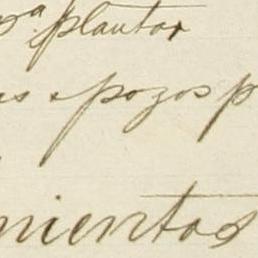 pª plantar
as pozos p
mientos